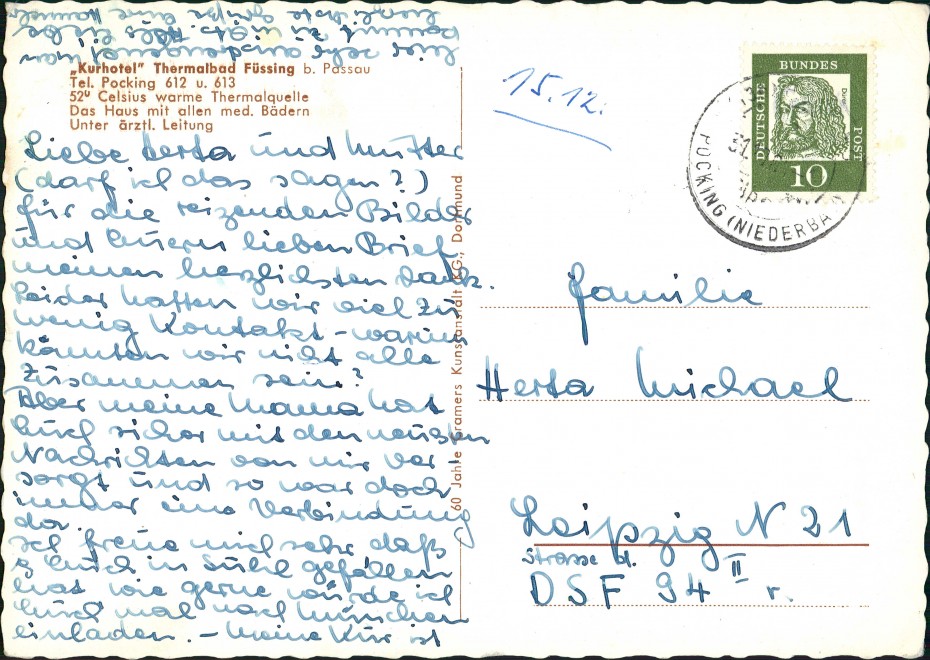 „Kurhotel" Thermalbad Füssing b. Passau
Tel. Pocking 612 u. 613
52° Celsius warme Thermalquelle
Das Haus mit allen med. Bädern
Unter ärztl. Leitung
Liebe Herta und Mutter
(darf ich das sagen?)
für die reizenden Bilder
und Euern lieben Brief
meinen herzlichsten Dank.
Leider hatten wir viel zu
wenig Kontakt - warum
könnten wir nicht alle
zusammen sein?
Aber meine Mama hat
Euch sicher mit den neusten
Nachrichten von mir ver
sorgt und so war doch
immer eine Verbindung
da.
Ich freue mich sehr daß
es Euch in Suhl gefallen
hat wie gerne würde ich
Euch mal nach München
einladen. - Meine Kur ist
hier sehr anstrengend man
kommt zu nichts. Alles Liebe
herzlichste Grüße Eure
60 Jahre Cramers Kunstanstalt KG., Dortmund
15.12.
DEUTSCHE
BUNDES
POST
Dürer
10
31.
POCKING (NIEDERBAY
Familie
Herta Michael
Leipzig N 21
Strasse d.
DSF 94 II r.